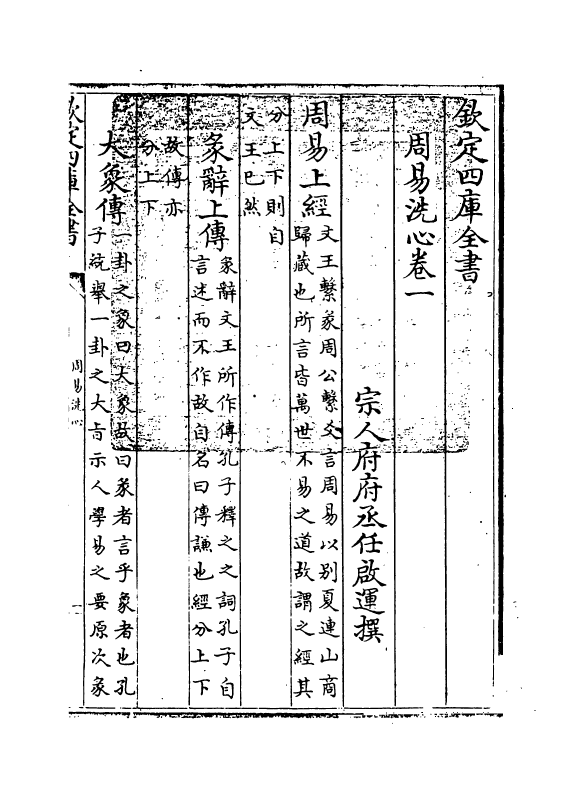 欽定四庫全書
周易洗心卷一
宗人府府丞任啟運撰
周易上經
文王繫彖周公繫爻言周易以别夏連山商
歸藏也所言皆萬世不易之道故謂之經其
分上下則自
文王已然
彖辭上傳
彖辭文王所作傳孔子釋之之詞孔子自
言述而不作故自名曰傳謙也經分上下
故傳亦
分上下
大象傳
一卦之象曰大象故曰彖者言乎象者也孔
子統舉一卦之大旨示人學易之要原次彖
欽定四庫全書
周易洗心
一